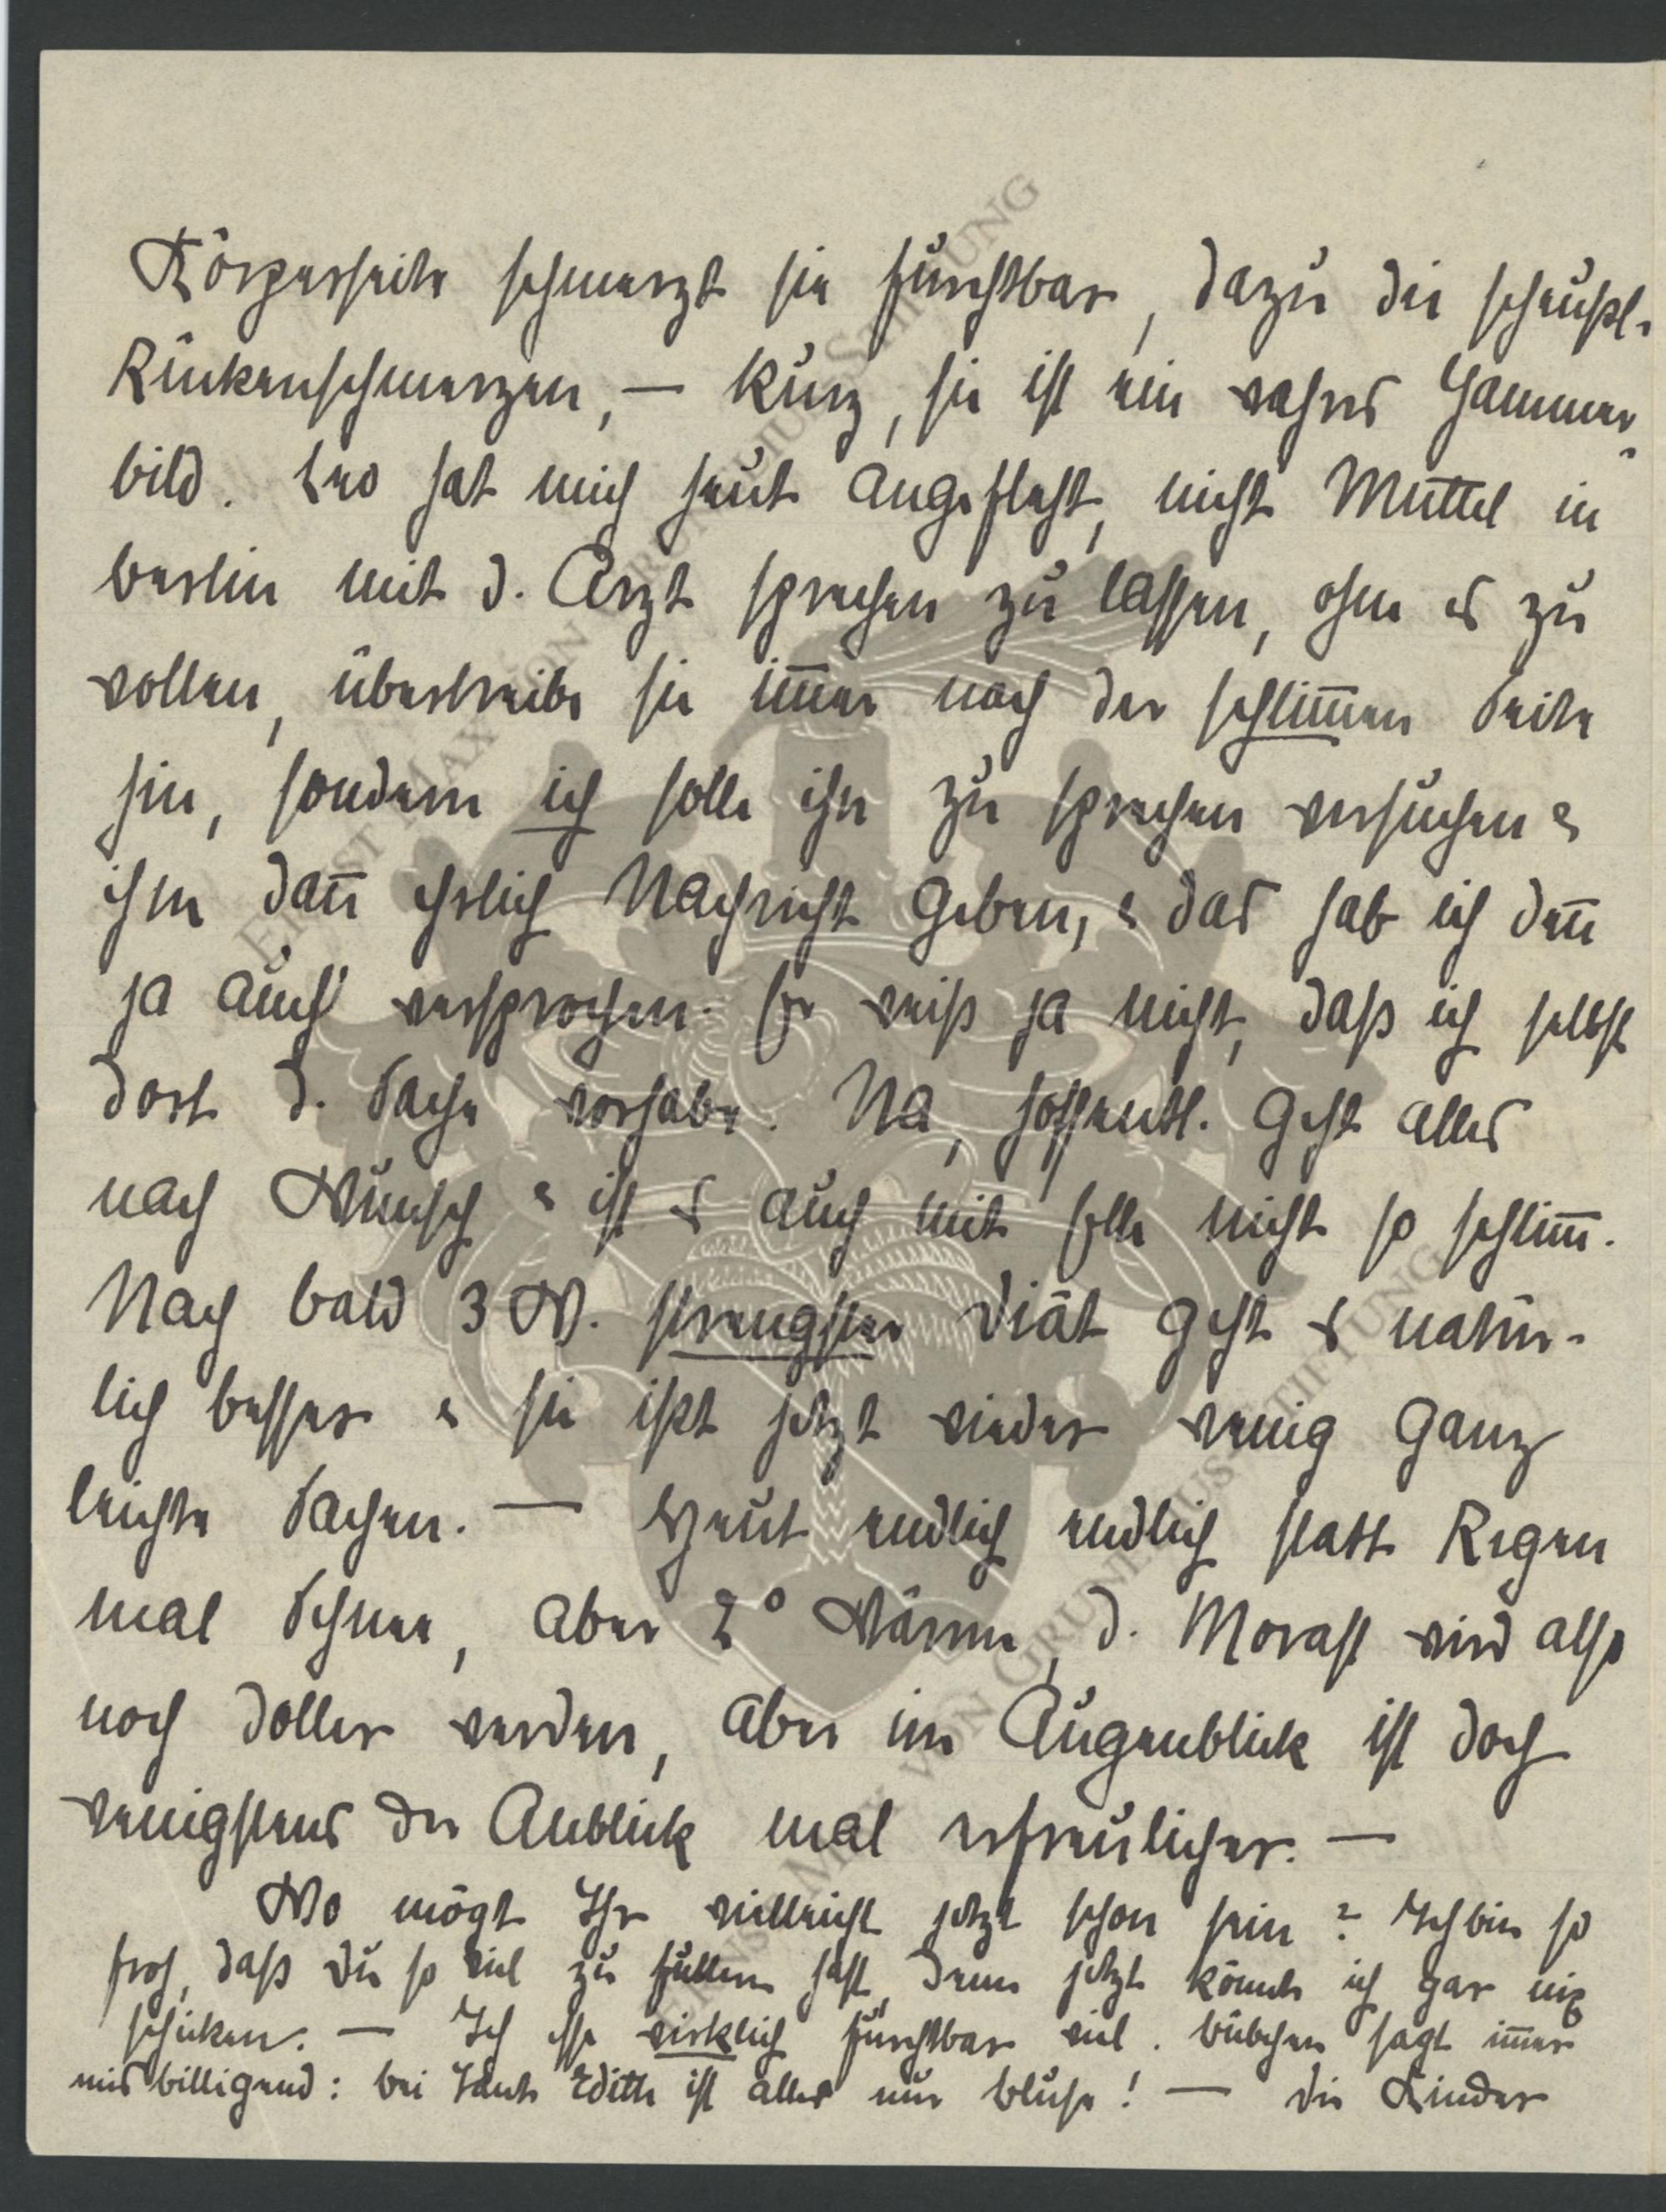 Körperseite schmerzt sie furchtbar, dazu die scheußl.
Rückenschmerzen, — kurz, sie ist ein wahres Jammer-
bild. Leo hat mich heut angefleht, nicht Muttel in
Berlin mit d. Arzt sprechen zu lassen, ohne es zu
wollen, übertreibe sie im̅er nach der schlim̅en Seite
hin, sondern ich solle ihn zu sprechen versuchen &
ihm dan̅ ehrlich Nachricht geben, & das hab ich den̅
ja auch versprochen. Er weiß ja nicht, daß ich selbst
dort d. Sache vorhabe. Na, hoffentl. geht alles
nach Wunsch & ist es auch mit Elle nicht so schlim̅.
Nach bald 3 W. strengster Diät geht es natür-
lich besser & sie ißt jetzt wieder wenig ganz
leichte Sachen. — Heut endlich endlich statt Regen
mal Schnee, aber 2° Wärme, d. Morast wird also
noch doller werden, aber im Augenblick ist doch
wenigstens der Anblick mal erfreulicher. —
Wo mögt Ihr vielleicht jetzt schon sein? Ich bin so
froh, daß Du so viel zu futtern hast, denn jetzt könnte ich gar nix
schicken. — Ich esse wirklich furchtbar viel. Bübchen sagt im̅er
misbilligend: bei Tante Edith ist alles nur Bluse! — Die Kinder
ERNST MAX VON GRUNELIUS-STIFTUNG
ERNST MAX VON GRUNELIUS-STIFTUNG